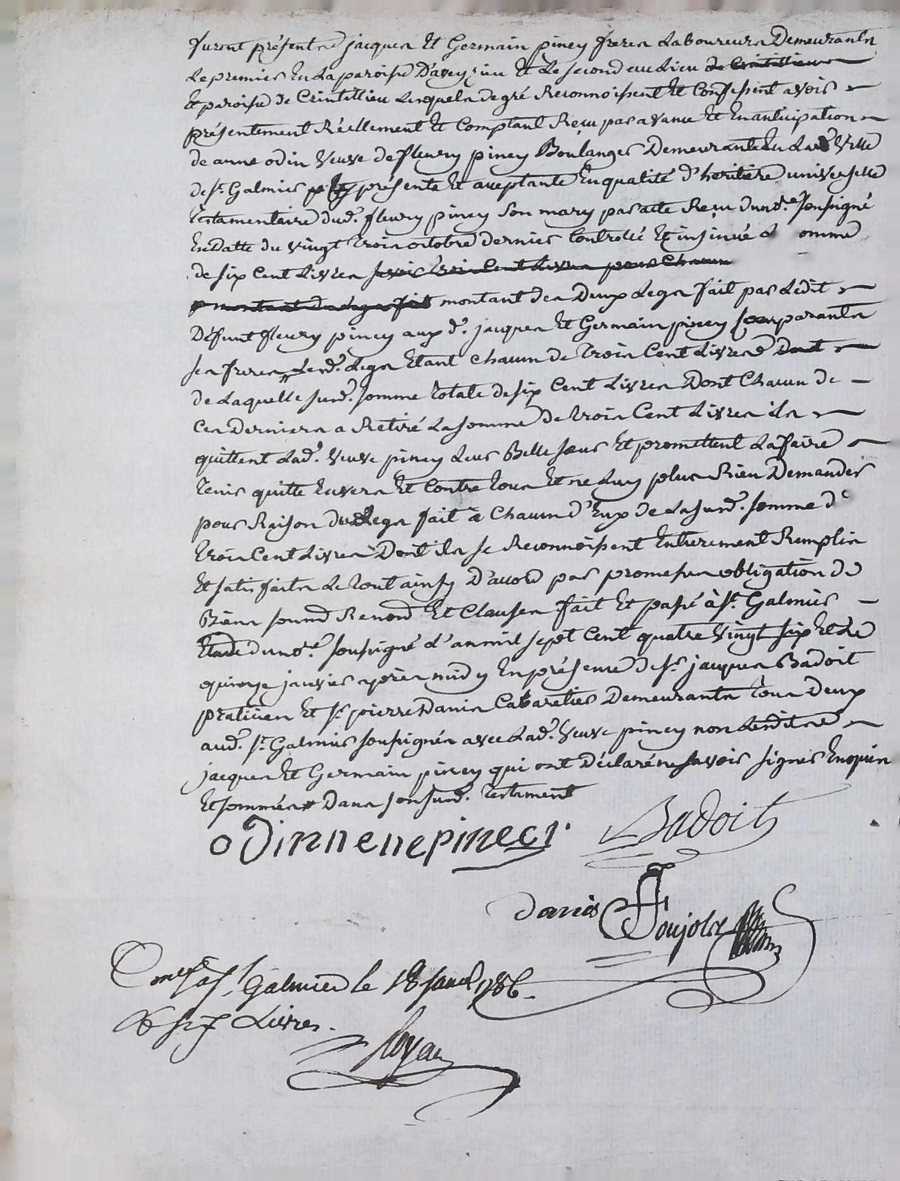 furent présents jacques Et Germain piney freres Laboureurs Demeurants
Le premier En La paroise D'aveyzieu Et Le second au Lieu
Et paroise de Crintillieu Lesquels de gré Reconnoissent Et Confessent avoir
présentement Réellement Et Comptant Reçu par avance Et En anticipation
de anne odin Veuve de fleury piney Boulanger Demeurante En Lad. Ville
de St. Galmier présente Et aceptante En qualité d'heritière universelle
Testamentaire dud. fleury piney Son mary par acte Reçu du no.re soussigné
En Datte du vingt trois octobre dernier Controllé Et insinué omme
de six Cent Livres
montant des Deux Legs fait par Ledit
Défunt fleury piney aux d. jacques Et Germain piney
ses freres Lesd. Legs Etant Chacun de trois Cent Livres
de Laquelle susd. somme totale de six Cent Livres Dont Chacun de
Ces Derniers a Retiré La somme de trois Cent Livres ils
quittent Lad. Veuve piney Leur Belle sœur Et promettent La faire
tenir quitte Envers Et Contre tous Et ne Luy plus Rien Demander
pour Raison du Legs fait à Chacun d'Eux de La susd. somme de
trois Cent Livres Dont ils se Reconnoissent Entierement Remplis
Et satisfaits Le tout ainsy D'acord par promesses obligation de
Biens soumd. Renond. Et Clauses fait Et passé à St. Galmier
Etude du no.re soussigné L'an mil sept Cent quatre Vingt six Et Le
quinze janvier après midy En présence de Sr. jacques Badoit
praticien Et Sr. pierre Danis Cabaretier Demeurants tous Deux
aud. St. Galmier soussignés avec Lad. Veuve piney non Lesdits
jacques Et Germain piney qui ont Déclaré ne savoir signer Enquis
Et sommés Dans son susd. testament
oDinnenepineci. Badoit
Danis
Con.lé à St. Galmier le 18 janv. 1786.
Livres.